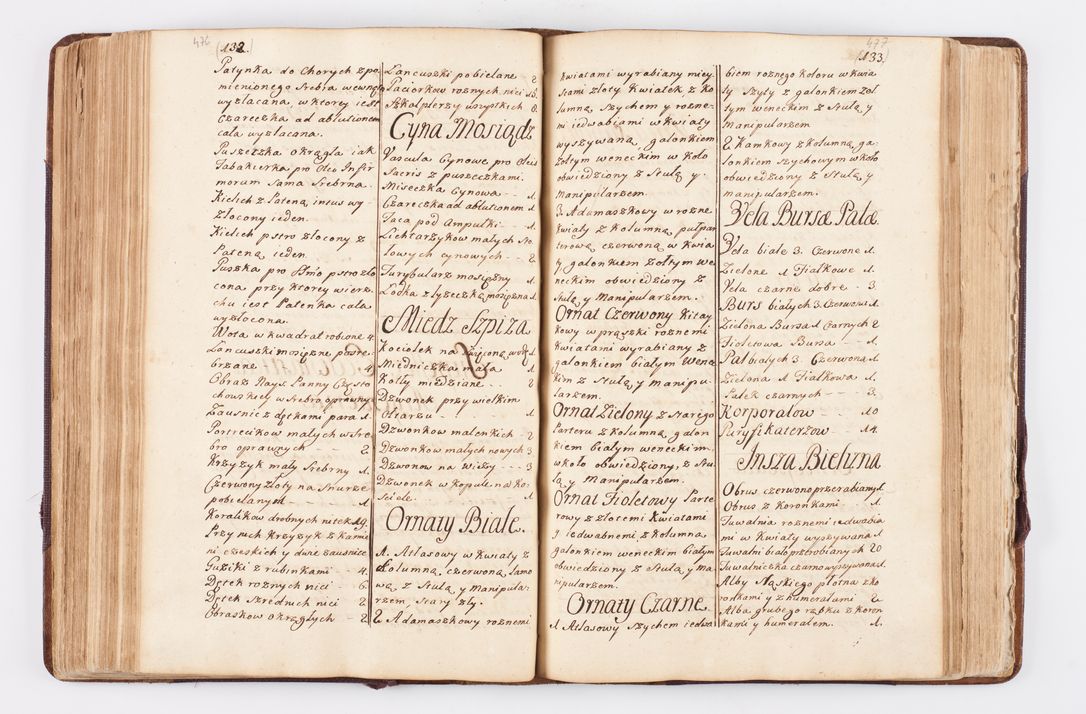 476
(132.)
Patynka do Chorych z po
mienionego Srebra wewnątr
wyzłacana, w ktorey iest
Czareczka ad ablutionem
cała wyzłacana.
Puszeczka okrągła iak
Tabakierka pro Oleo Infir
morum Sama Srebrna.
Kielich z Pateną, intus wy
złocony ieden.
Kielich pstro złocony z
Pateną ieden.
Puszka pro SSmo pstro zło
cona przy ktorey wierz
chu iest Patenka cała
wyzłocona.
Wota w kwadrat robione 4.
Łancuszki mosięzne posre
brzane 4
Obraz Nays. Panny Często
chowskiey w Srebro oprawny
Zausnic z dętkami para 1
Portrecikow małych w Sre
bro oprawnych 2.
Krzyzyk mały Srebrny 1.
Czerwony Złoty na Snurze
pobielanym 1
Koralikow drobnych nitek 19.
Przy nich Krzyzyk z Kamie
ni czeskich y dwie zausnice
Guziki z rubinkami 4.
Dętek roznych nici 6.
Dętek Srednich nici 2
Obraskow okrągłych 2
Łancuszki pobielane 2
Paciorkow roznych nici 15.
Szkaplerzy wszystkich 8.
Cyna Mosiądz
Vascula Cynowe pro Oleis
Sacris z puszeczkami.
Miseczka Cynowa 1.
Czareczka ad ablutionem 1
Taca pod Ampułki 1.
Lichtarzykow małych Sto
łowych cynowych 2
Turybularz mosięzny
Łodka z łyzeczką mosięzna 1
Miedz Szpiza
Kociołek na Swięconą wodę 1.
Miedniczka mała 1
Kotły miedziane 2
Dzwonek przy wielkim
Ołtarzu 1
Dzwonkow malenkich 2
Dzwonkow małych nowych 3
Dzwonow na Wiezy 3
Dzwonek w Kopule na Ko
sciele. 1
Ornaty Białe.
1. Atłasowy w kwiaty z
Kolumną czerwoną Samo
wą, z Stułą y Manipula-
rzem, Stary zły.
2 Adamaszkowy roznemi
477
(133)
kwiatami wyrabiany miey
scami złoty kwiatek z Ko
lumną, Szychem y rozne-
mi iedwabiami w kwiaty
wyszywaną, galonkiem
zołtym weneckim w koło
obwiedziony z Stułą y
Manipularzem.
3. Adamaszkowy w rozne
kwiaty z Kolumną pułpar
terową czerwoną w kwia
ty galonkiem zołtym we
neckim obwiedziony z
Stułą y Manipularzem.
Ornat Czerwony Kitay
kowy w prąszki roznemi
kwiatami wyrabiany z
galonkiem białym Wenec
kim z Stułą y manipu-
larzem.
Ornat Zielony z Starego
Parteru z Kolumną, galon
kiem białym weneckim
wkoło obwiedziony, z Stu
łą y Manipularzem.
Ornat Fioletowy Parte
rowy z złotemi kwiatami
y iedwabnemi z kolumną
galonkiem weneckim białym
obwiedziony z Stułą y Ma
nipularzem.
Ornaty Czarne.
1 Atłasowy Szychem iedwa
biem roznego koloru w kwia
ty Szyty z galonkiem zoł
tym weneckim z Stułą y
Manipularzem
2 Kamkowy z kolumną ga-
lonkiem Szychowym w koło
obwiedziony z Stułą y
manipularzem.
Vela Bursæ Palæ
Vela białe 3. Czerwone 1.
Zielone 1 Fiałkowe 1.
Vela czarne dobre 3.
Burs białych 3. Czerwona 1.
Zielona Bursa 1 Czarnych 2
Fioletowa Bursa 1.
Pal białych 3 Czerwona 1.
Zielona 1 Fiałkowa 1.
Palek czarnych 3.
Korporałow 10
Puryfikaterzow 14.
Insza Bielizna
Obrus czerwono przerabiany 1.
Obrus z Koronkami 1
Tuwalnia roznemi iedwabia
mi w kwiaty wyszywana 1
Tuwalni biało przerobianych 20
Tuwalniczka czarno wyszywana 1.
Alby Sląskiego płotna z ko
ronkami y z humerałami 2
Alba grubego rąbku z koron
kami y humerałem. 1.